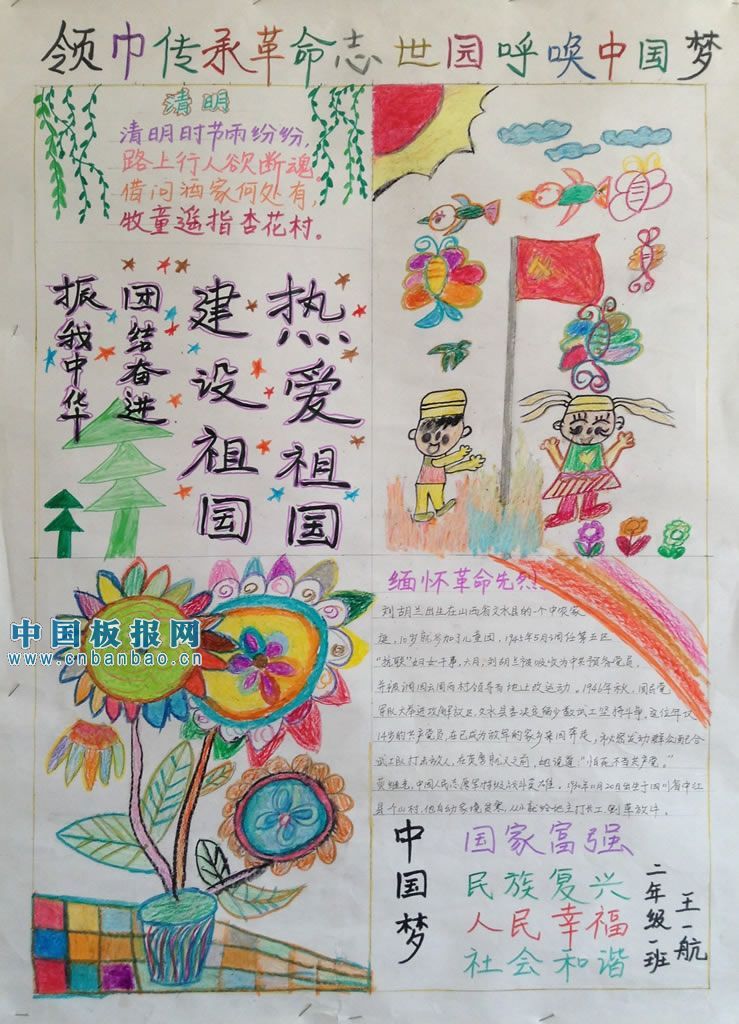 领巾传承革命志 世园呼唤中国梦
清明
清明时节雨纷纷,
路上行人欲断魂。
借问酒家何处有,
牧童遥指杏花村。
热爱祖国
建设祖国
团结奋进
振我中华
中国板报网
www.cnbanbao.cn
缅怀革命先烈
刘胡兰出生在山西省文水县的一个中农家
庭,10岁就参加了儿童团,1945年5月调任第五区
"抗联"妇女干事,六月,刘胡兰被吸收为中共预备党员,
并被调回云周西村领导当地土改运动。1946年秋,国民党
军队大举进攻解放区,文水县委决定留少数武工坚持斗争,这位年仅
14岁的共产党员,在已成为敌军的家乡来回奔走,
武工队打击敌人,在英勇就义之前,她说道:"怕死不当共产党。"
黄继光,中国人民志愿军特级战斗英雄。1930年11月20日出生于四川省中江
县个山村,他自幼家境贫寒,从小就给地主打长工,割草放牛。
中国梦
国家富强
民族复兴
人民幸福
社会和谐
二年级一班
王一航